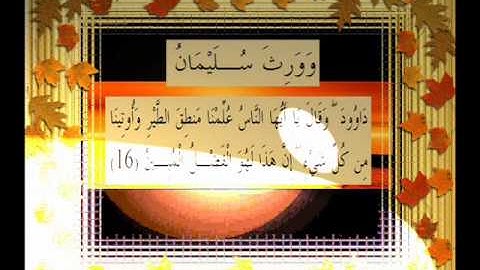 وَوَرِثَ سُلَيْمَانُ
دَاوُودَ ۖ وَقَالَ يَا أَيُّهَا النَّاسُ عُلِّمْنَا مَنطِقَ الطَّيْرِ وَأُوتِينَا
مِن كُلِّ شَيْءٍ ۖ إِنَّ هَذَا لَهُوَ الْفَضْلُ الْمُبِينُ (16)